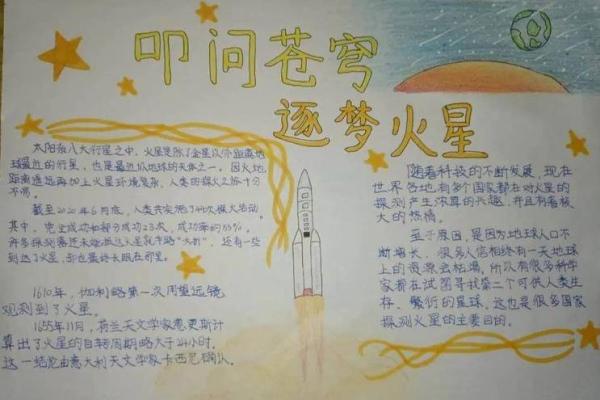 叩问苍穹
逐梦火星
太阳系八大行星之中，火星是除了金星以外距离地
球最近的行星，也是最近似地球的天体之一。因火地
距离遥远再加上火星环境复杂，人类的探火之旅十分
不 。
截至2020年6月底，人类共实施了44次探火活动。
其中，完全成功和部分成功23次，成功率约55%。
许多探测器还未 抵达火星就半路“夭折”，还有一些
到达了火星，却也最终长眠在那里。
1610年，伽利略第一次用望远镜
观测到了火星。
1655年11月，荷兰天文学家惠更斯计
算出了火星的自转周期略大于24小时。
这一结论由意大利天文学家卡西尼确认。
随着科技的不断发展，现在
世界各地有多个国家都在对火星的
探测产生浓厚的兴趣，并且有着极
大的热情。
至于原因，是因为地球人口不
断增长，很多人信相终有一天地球
上的资源会枯竭，所以有很多科学
家都在试图寻找第二个可供人类生
存、繁衍的星球，这也是很多国家
探测火星的主要目的。